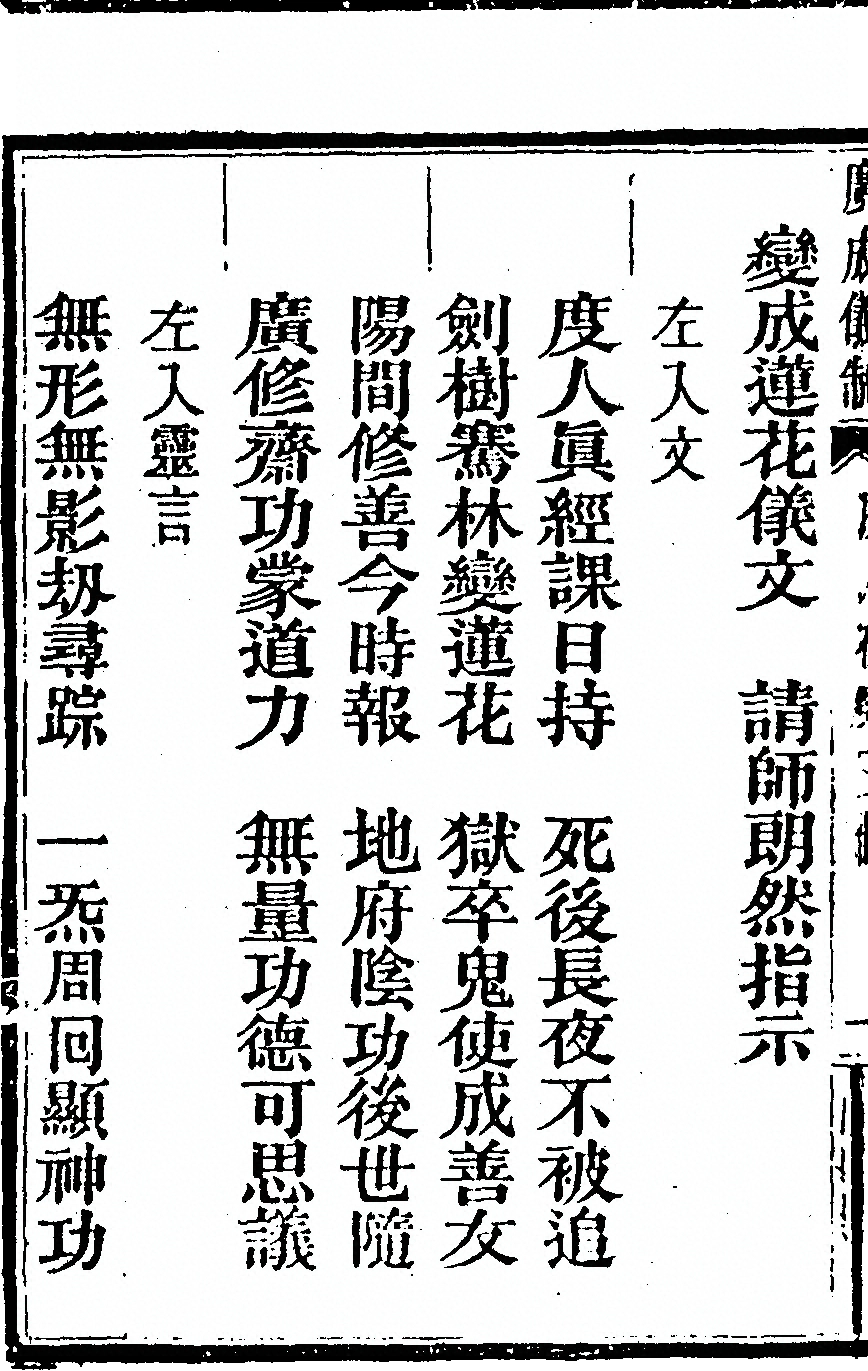 廣成儀制
變成蓮花儀文　請師朗然指示
左入文
度人眞經課日持　死後長夜不被追
劍樹騫林變蓮花　獄卒鬼使成善友
陽間修善今時報　地府陰功後世隨
廣修齋功蒙道力　無量功德可思議
左入靈言
無形無影刼尋踪　一炁周回顯神功